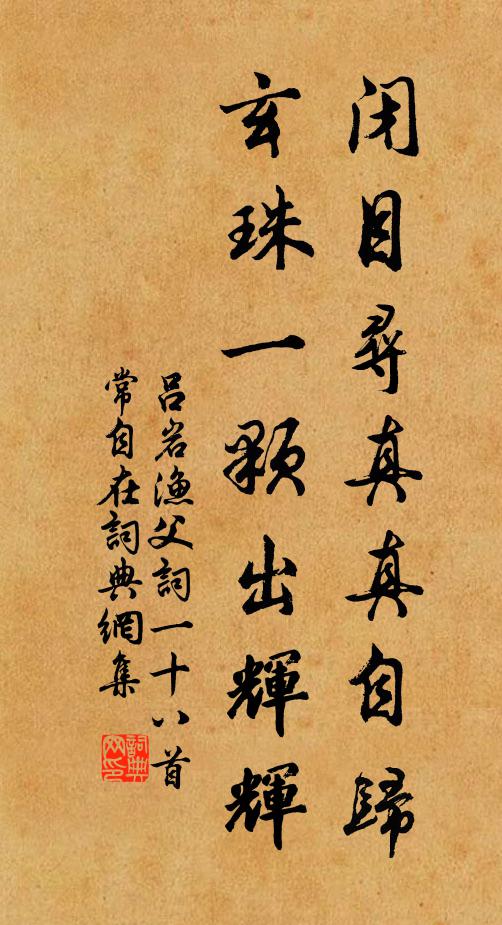 闭目尋真真自歸
玄珠一顆出輝輝
吕岩漁父詞一十八首
常自在詞典網集
詞典网印